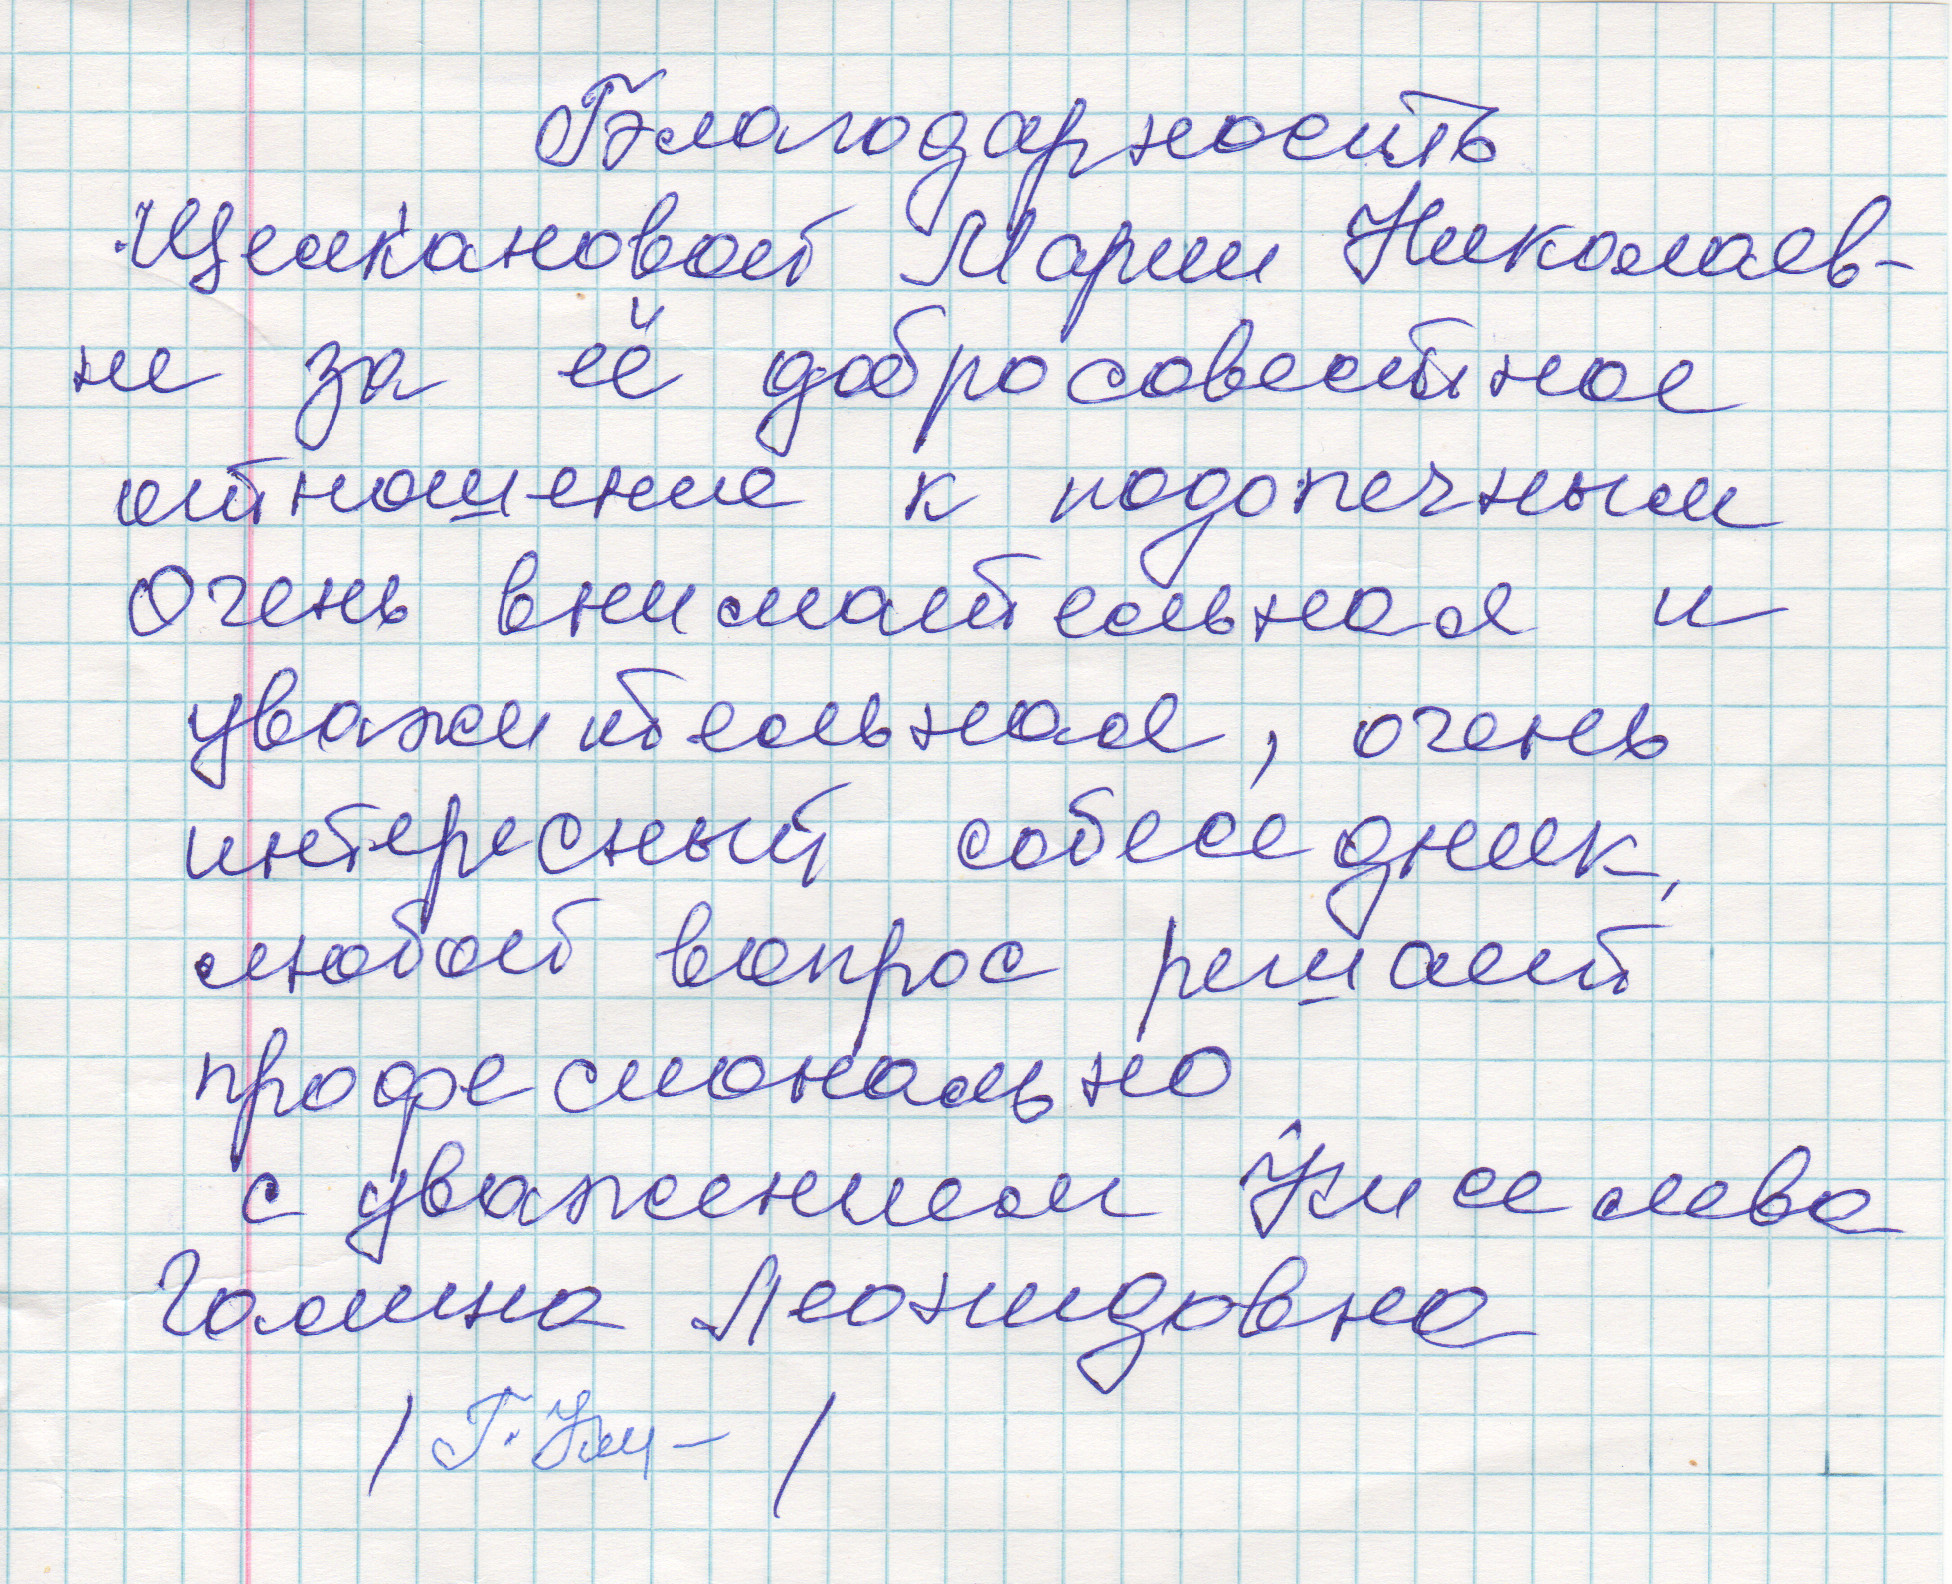 Благодарность
Щелкановой Марии Николаев-
не за её добросовестное
отношение к подопечным
Очень внимательная и
уважительная, очень
интересный собеседник,
любой вопрос решает
професионально
с уважением Киселева
Галина Леонидовна